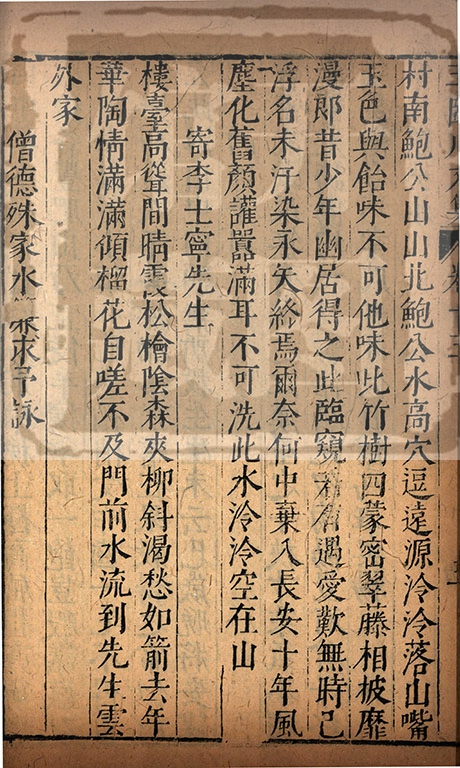 村南鮑公山山北鮑公水高穴逗遠源泠泠落山嘴
玉色與飴味不可他味此竹樹四蒙密翠藤相披靡
漫郎昔少年幽居得之此臨窺若有遇愛歎無時已
浮名未汙染永矢終焉爾奈何中棄入長安十年風
塵化舊顏讙囂滿耳不可洗此水泠泠空在山
寄李士寧先生
樓臺高聳間晴霞松檜陰森夾柳斜渴愁如箭去年
華陶情滿滿傾榴花自嗟不及門前水流到先生雲
外家
僧德殊家水簾求予詠